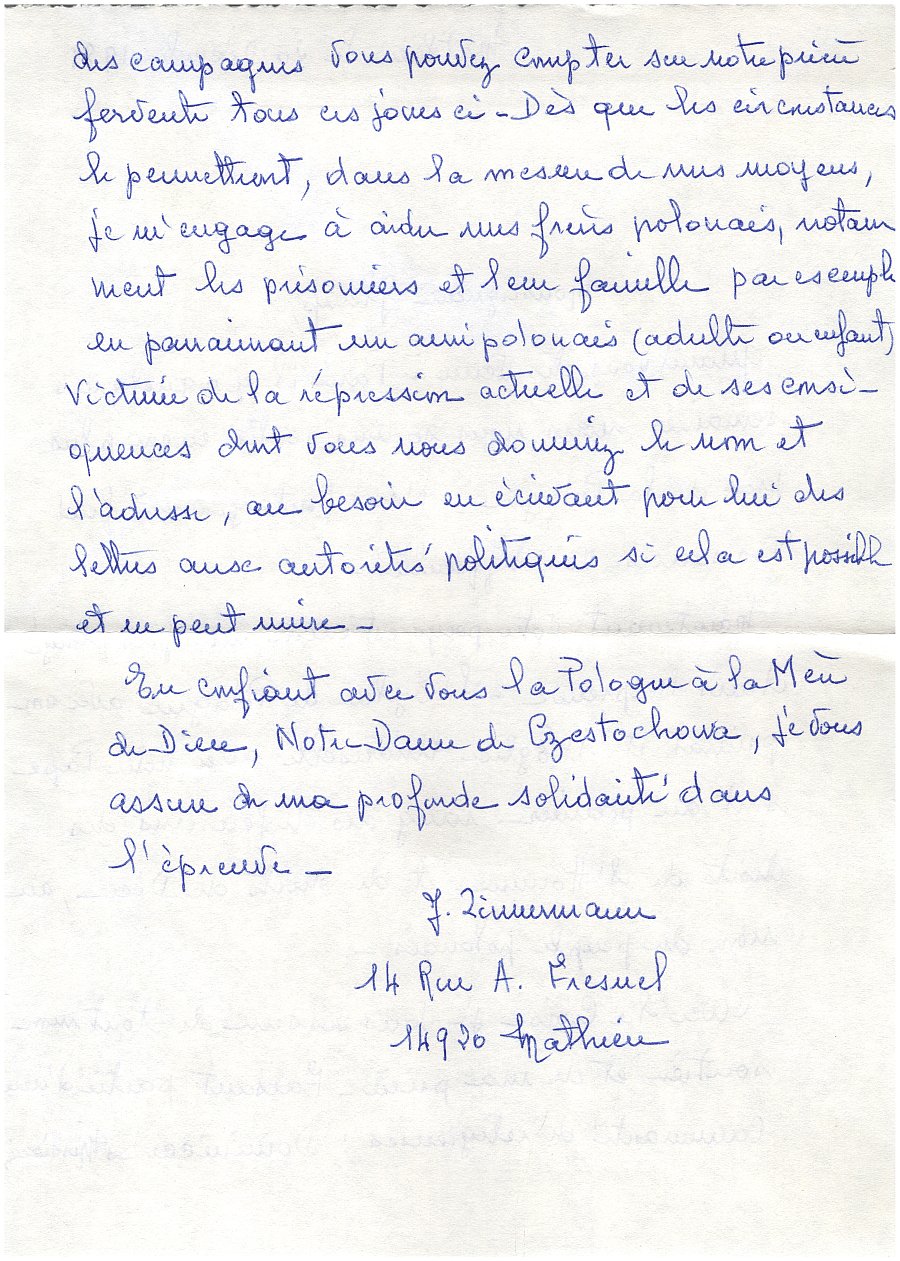 des campagnes vous pouvez compter sur notre prière
fervente tous ces jours ci - Dès que les circonstances
le permettront, dans la mesure de nos moyens,
je m'engage à aider nos frères polonais, notam
ment les prisonniers et leur famille par exemple
en parrainant un ami polonais (adulte ou enfant)
Victime de la répression actuelle et de ses consé-
quences dont vous nous donneriez le nom et
l'adresse, au besoin en écrivant pour lui des
lettres aux autorités politiques si cela est possible
et ne peut nuire -
En confiant avec vous la Pologne à la Mère
de Dieu, Notre Dame de Czestochowa, je vous
assure de ma profonde solidarité dans
l'épreuve -
J. Zimmermann
14 Rue A. Fresnel
14920 Mathieu